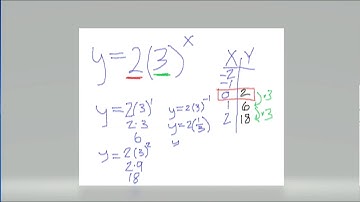 y=2(3)^x
y=2(3)^1
2·3
6
y=2(3)^2
2·9
18
y=2(3)^-1
y=2(1/3)
y
X Y
-2
-1
0 2
1 6
2 18
·3
·3